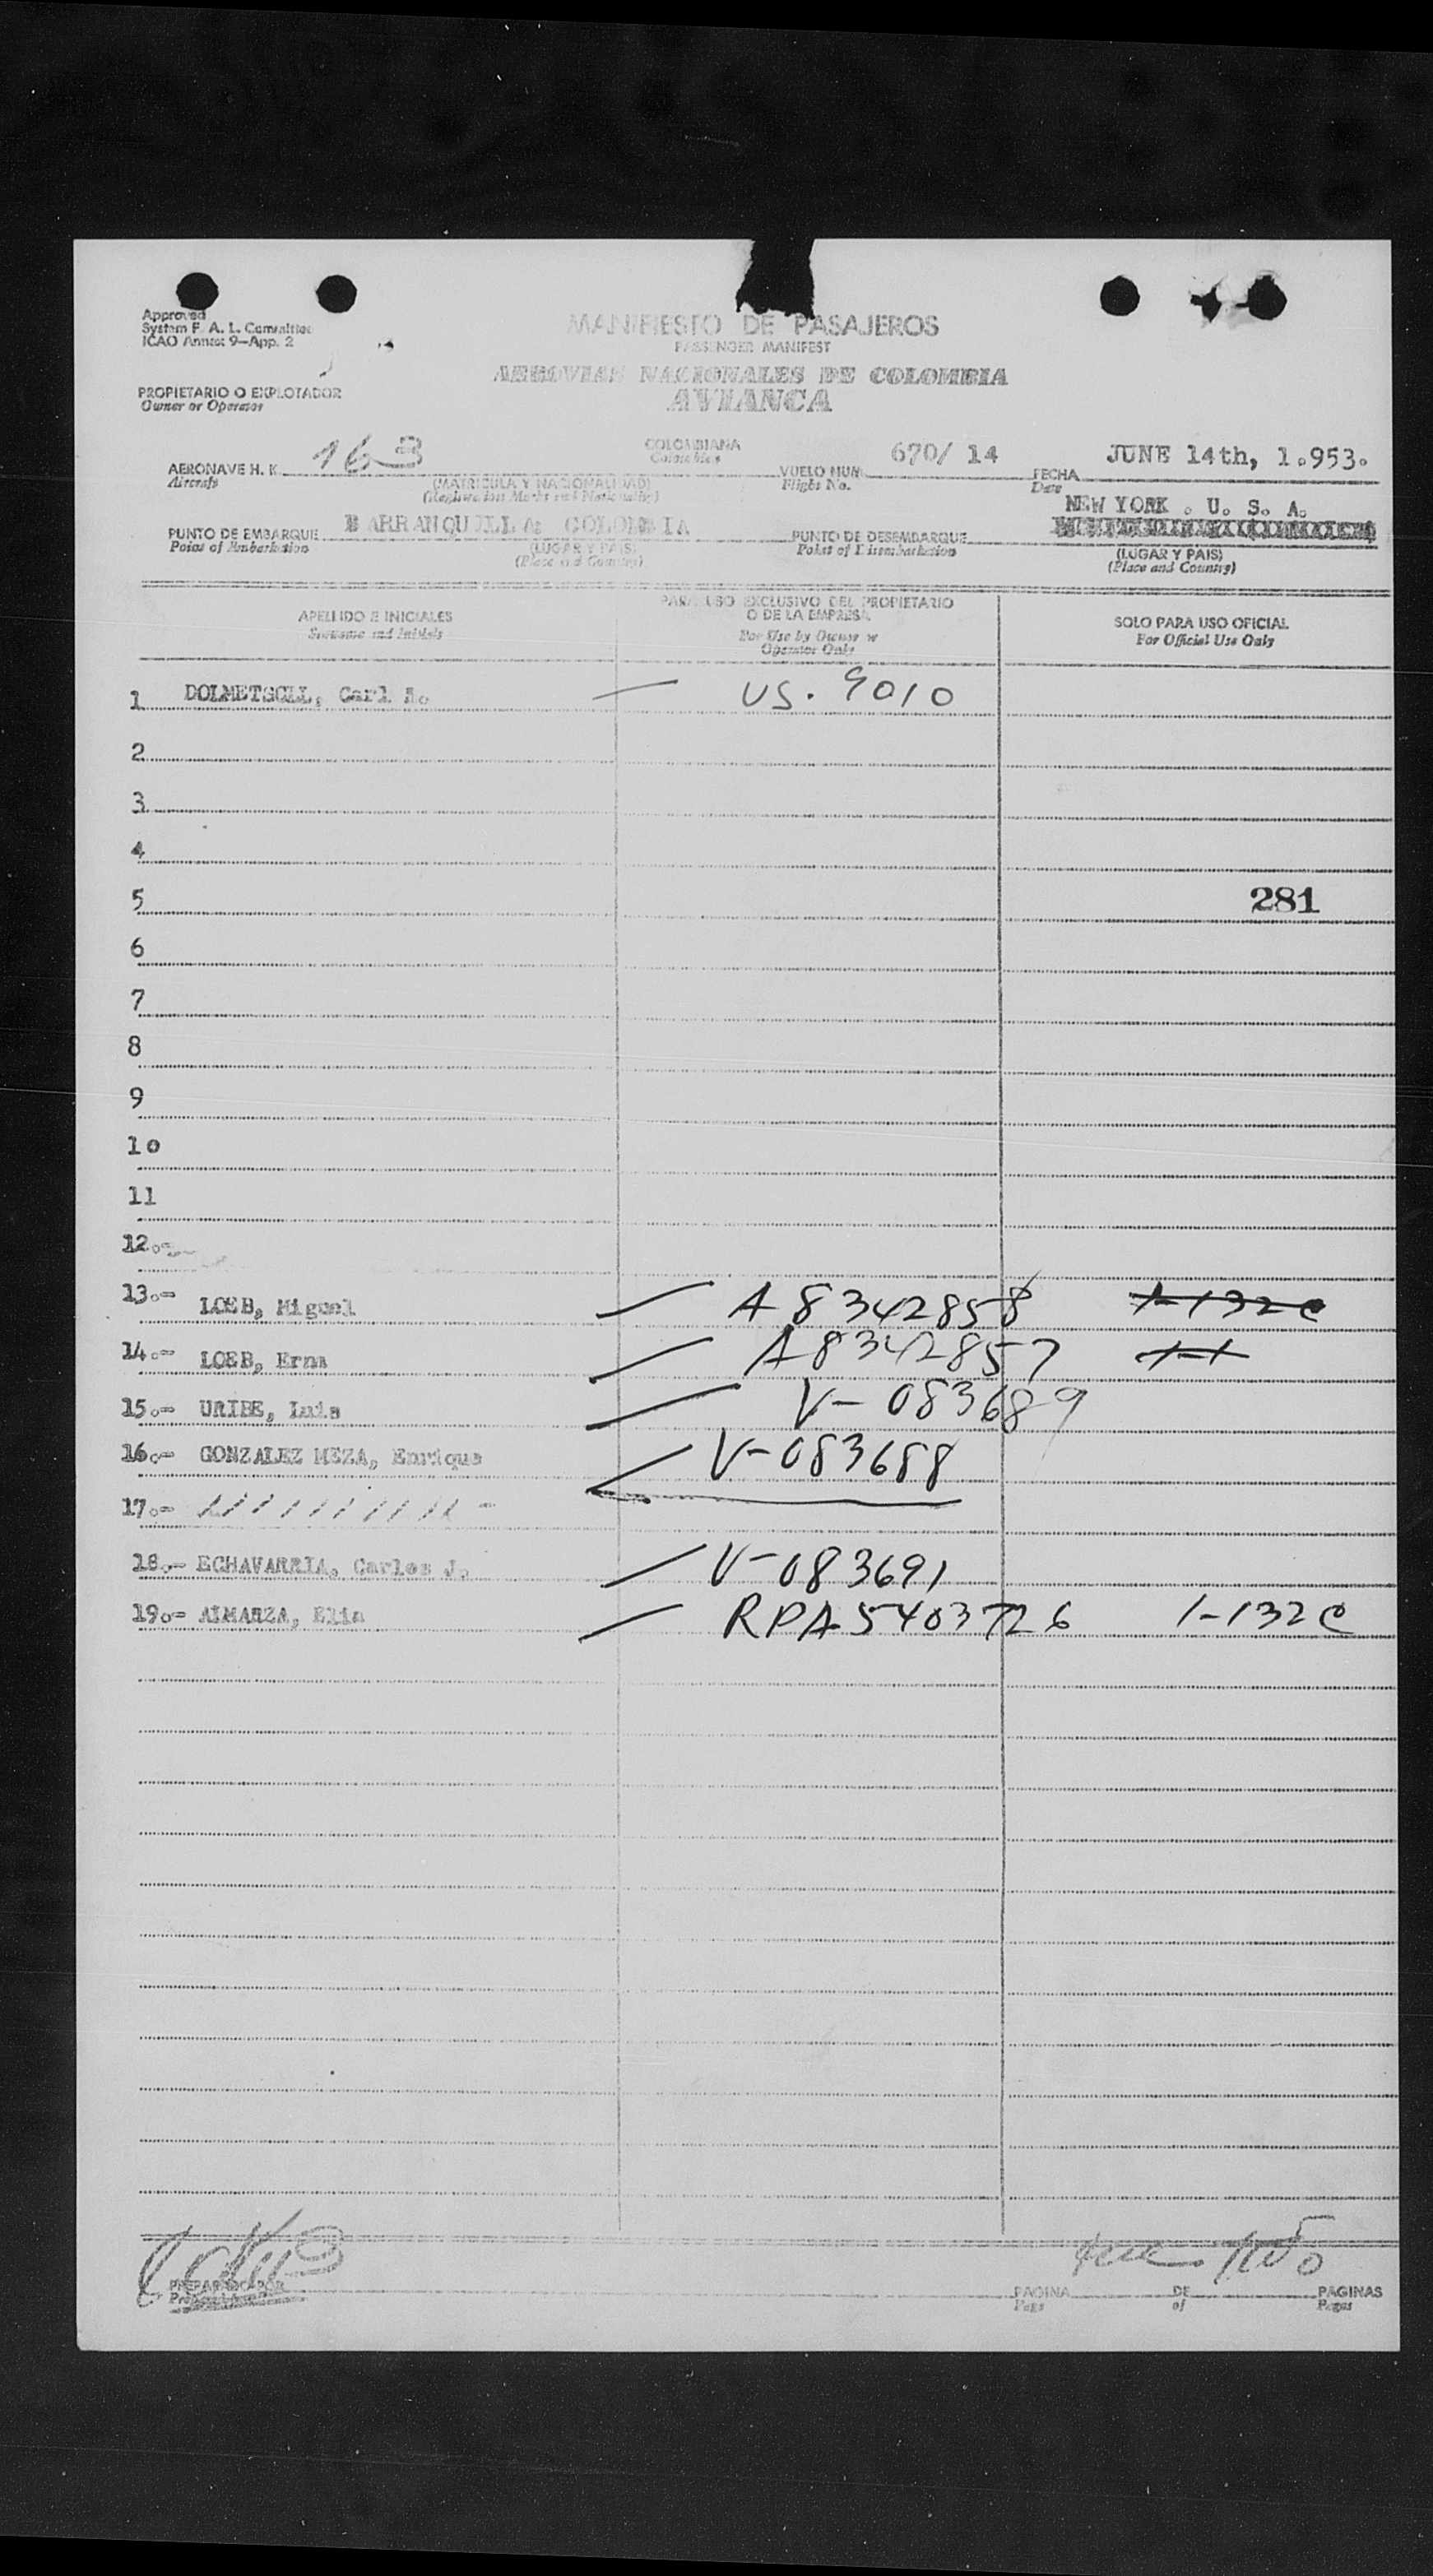 Approved
System F. A. L. Committee
ICAO Annex 9—App. 2
MANIFIESTO DE PASAJEROS
PASSENGER MANIFEST
AEROVIAS NACIONALES DE COLOMBIA
AVIANCA
PROPIETARIO O EXPLOTADOR
Owner or Operator
AERONAVE H. K. 163 COLOMBIANA VUELO NUM. 670/ 14 FECHA JUNE 14th, 1.953.
Aircraft Colombian Flight No. Date
(MATRICULA Y NACIONALIDAD)
(Registration Marks and Nationality)
NEW YORK . U. S. A.
PUNTO DE EMBARQUE BARRANQUILLA: COLOMBIA PUNTO DE DESEMBARQUE
Point of Embarkation (LUGAR Y PAIS) Point of Disembarkation (LUGAR Y PAIS)
(Place and Country) (Place and Country)
APELLIDO E INICIALES PARA USO EXCLUSIVO DEL PROPIETARIO O DE LA EMPRESA SOLO PARA USO OFICIAL
Surname and Initials For Use by Owner or Operator Only For Official Use Only
1 Carl US. 9010
2
3
4
5 281
6
7
8
9
10
11
12.-
13.- LOEB, Miguel A8342858 1-132c
14.- LOEB, Erna A8342857
15.- URIBE, Luis V-083689
16.- GONZALEZ MEZA, Enrique V-083688
17.- / / / / / / / / / / -
18.- ECHAVARRIA, Carlos J. V-083691
19.- ALMARZA, Elia RPA5403726 1-132c
PREPARADO POR PAGINA DE PAGINAS
Prepared by Page of Pages